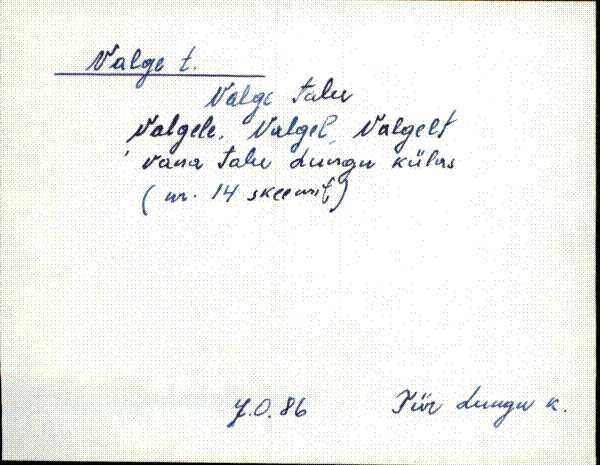 Valge t.
Valge talu
Valgele, Valgel, Valgelt
vana talu Lungu külas
(nr. 14 skeemil)
J.O. 86
Tür Lungu k.